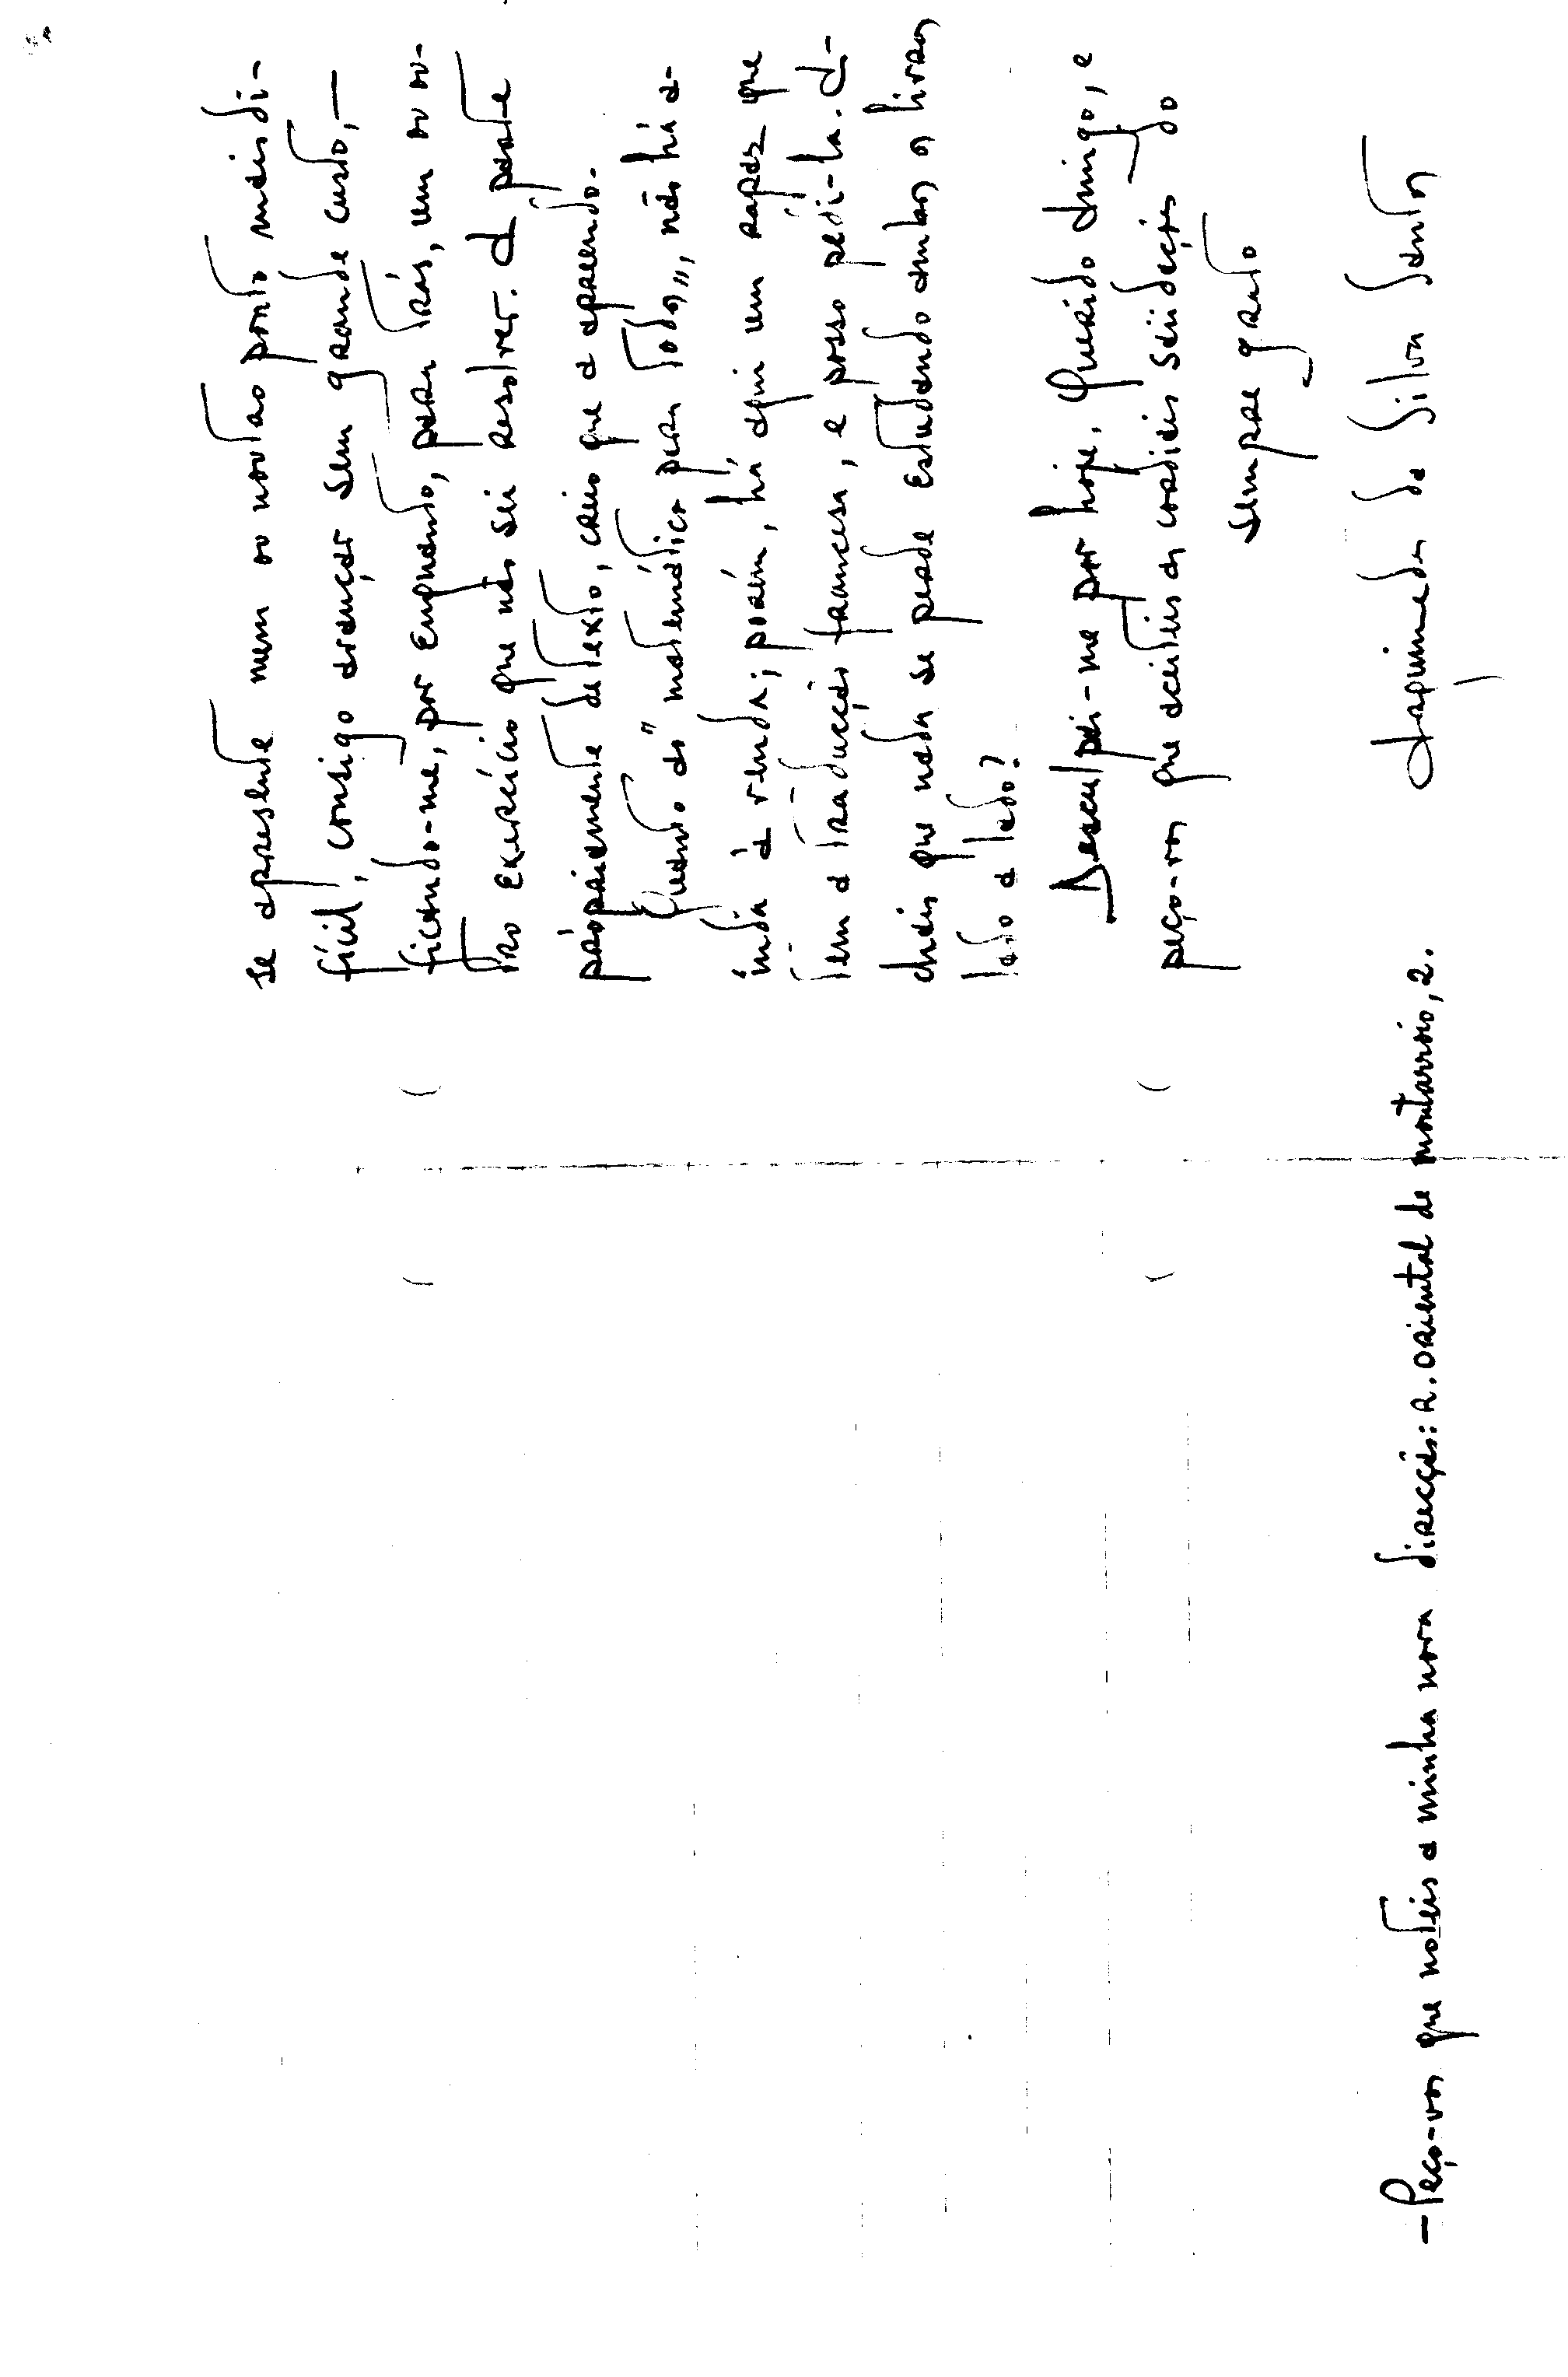 se apresente num ou noutro ponto mais di-
fícil, consigo avançar sem grande custo, —
ficando-me, por enquanto, para trás, um ou ou-
tro exercício que não sei resolver. A parte
pròpriamente de texto, creio que a apreendo.
Quanto às "matemática para todos", não há a-
inda à venda; porém, há aqui um rapaz que
tem a traducção francesa, e posso pedi-la. A-
chais que nada se perde estudando ambos os livros
lado a lado?
Desculpai-me por hoje, Querido Amigo, e
peço-vos que aceiteis as cordiais saüdações do
sempre grato
Arquimedes da Silva Santos
— Peço-vos que noteis a minha nova direcção: R. Oriental de Montarroio, 2.